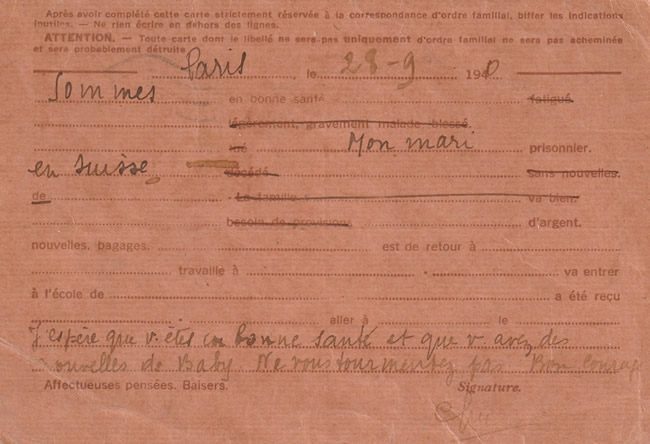 Après avoir complété cette carte strictement réservée à la correspondance d'ordre familial, biffer les indications
inutiles. — Ne rien écrire en dehors des lignes.
ATTENTION. — Toute carte dont le libellé ne sera pas uniquement d'ordre familial ne sera pas acheminée
et sera probablement détruite.
Paris, le 28-9 1940
Sommes en bonne santé fatigué.
légèrement, gravement malade blessé.
tué Mon mari prisonnier.
en Suisse décédé Sans nouvelles.
de La famille va bien.
besoin de provisions d'argent.
nouvelles, bagages. est de retour à
travaille à va entrer
à l'école de a été reçu
aller à le
J'espère que v. êtes en bonne santé et que v. avez des
nouvelles de Baby. Ne vous tourmentez pas Bon courage
Affectueuses pensées. Baisers. Signature.